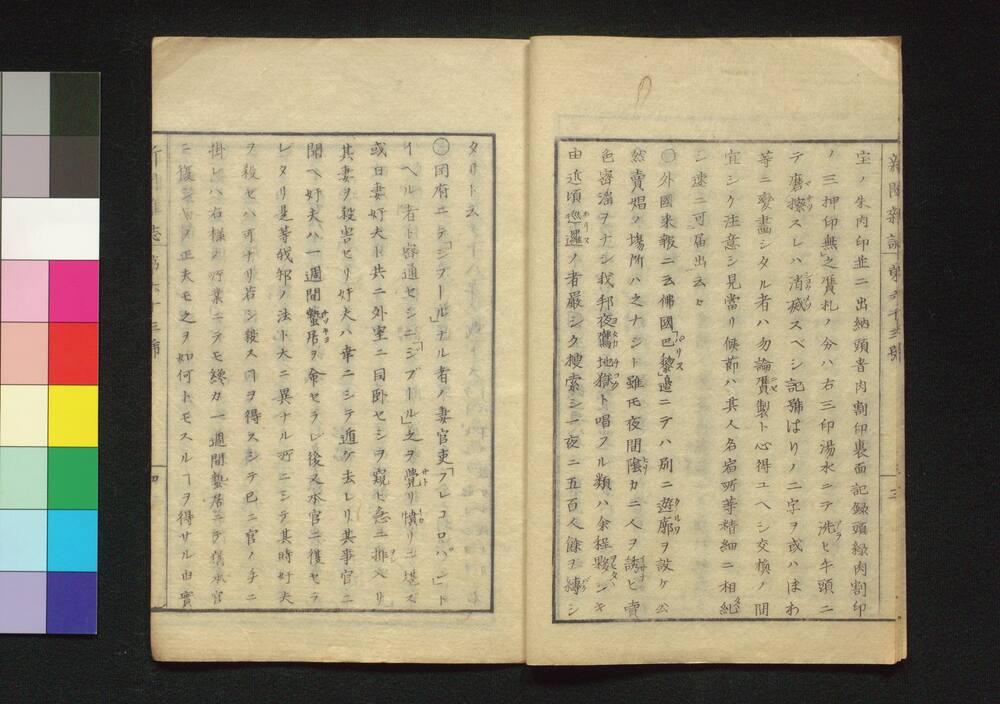 新聞雜誌 第六十三號
三
宝ノ朱肉印並ニ出納頭青肉割印裏面記録頭緑肉割印
ノ三押印無之贋札ノ分ハ右三印湯水ニテ洗ヒ牛頭ニ
テ磨擦スレハ消滅スベシ記號はりノ二字ヲ或ハほわ
等ニ変畫シタル者ハ勿論贋製ト心得ユヘシ交換ノ間
宜シク注意シ見當リ候節ハ其人名宿所等精細ニ相糺
シ速ニ可届出云々
○外國来報ニ云佛國「巴黎」邉ニテハ別ニ遊廓ヲ設ケ公
然賣娼ノ塲所ハ之ナシト雖𪜈夜間陰カニ人ヲ誘ヒ賣
色密淫ヲナシ我邦夜鷹地獄ト唱フル類ハ余程夥シキ
由近頃巡邏ノ者嚴シク捜索シ一夜ニ五百人餘ヲ縛シ
タリト云
○同府ニテ「ジブール」ナル者ノ妻官吏「フレコロパン」ト
イヘル者ト密通セシニ「ジブール」之ヲ覺リ憤リニ堪ズ
或日妻奸夫ト共ニ外室ニ同卧セシヲ窺ヒ急ニ排入リ
其妻ヲ殺害セリ奸夫ハ幸ニシテ遁ケ去レリ其事官ニ
聞ヘ奸夫ハ一週間蟄居ヲ命セラレ後又本官ニ復セラ
レタリ是等我邦ノ法ト大ニ異ナル所ニシテ其時奸夫
ヲ殺セハ可ナリ若シ殺スヿヲ得スシテ已ニ官ノ手ニ
掛レハ右様ノ所業ニテモ纔カ一週間蟄居ニテ舊本官
ニ復シ正夫モ之ヲ如何トモスルヿヲ得サル由實
新聞雜誌 第六十三號
四